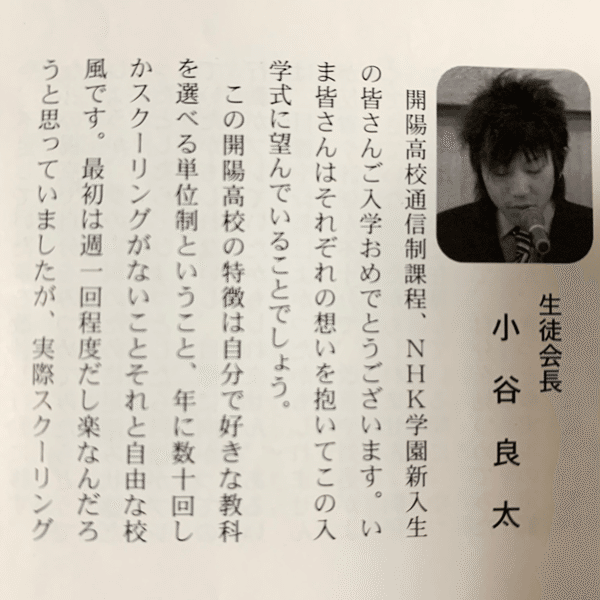 生徒会長
小谷良太
開陽高校通信制課程、NHK学園新入生
の皆さんご入学おめでとうございます。い
ま皆さんはそれぞれの想いを抱いてこの入
学式に望んでいることでしょう。
この開陽高校の特徴は自分で好きな教科
を選べる単位制ということ、年に数十回し
かスクーリングがないことそれと自由な校
風です。最初は週一回程度だし楽なんだろ
うと思っていましたが、実際スクーリング